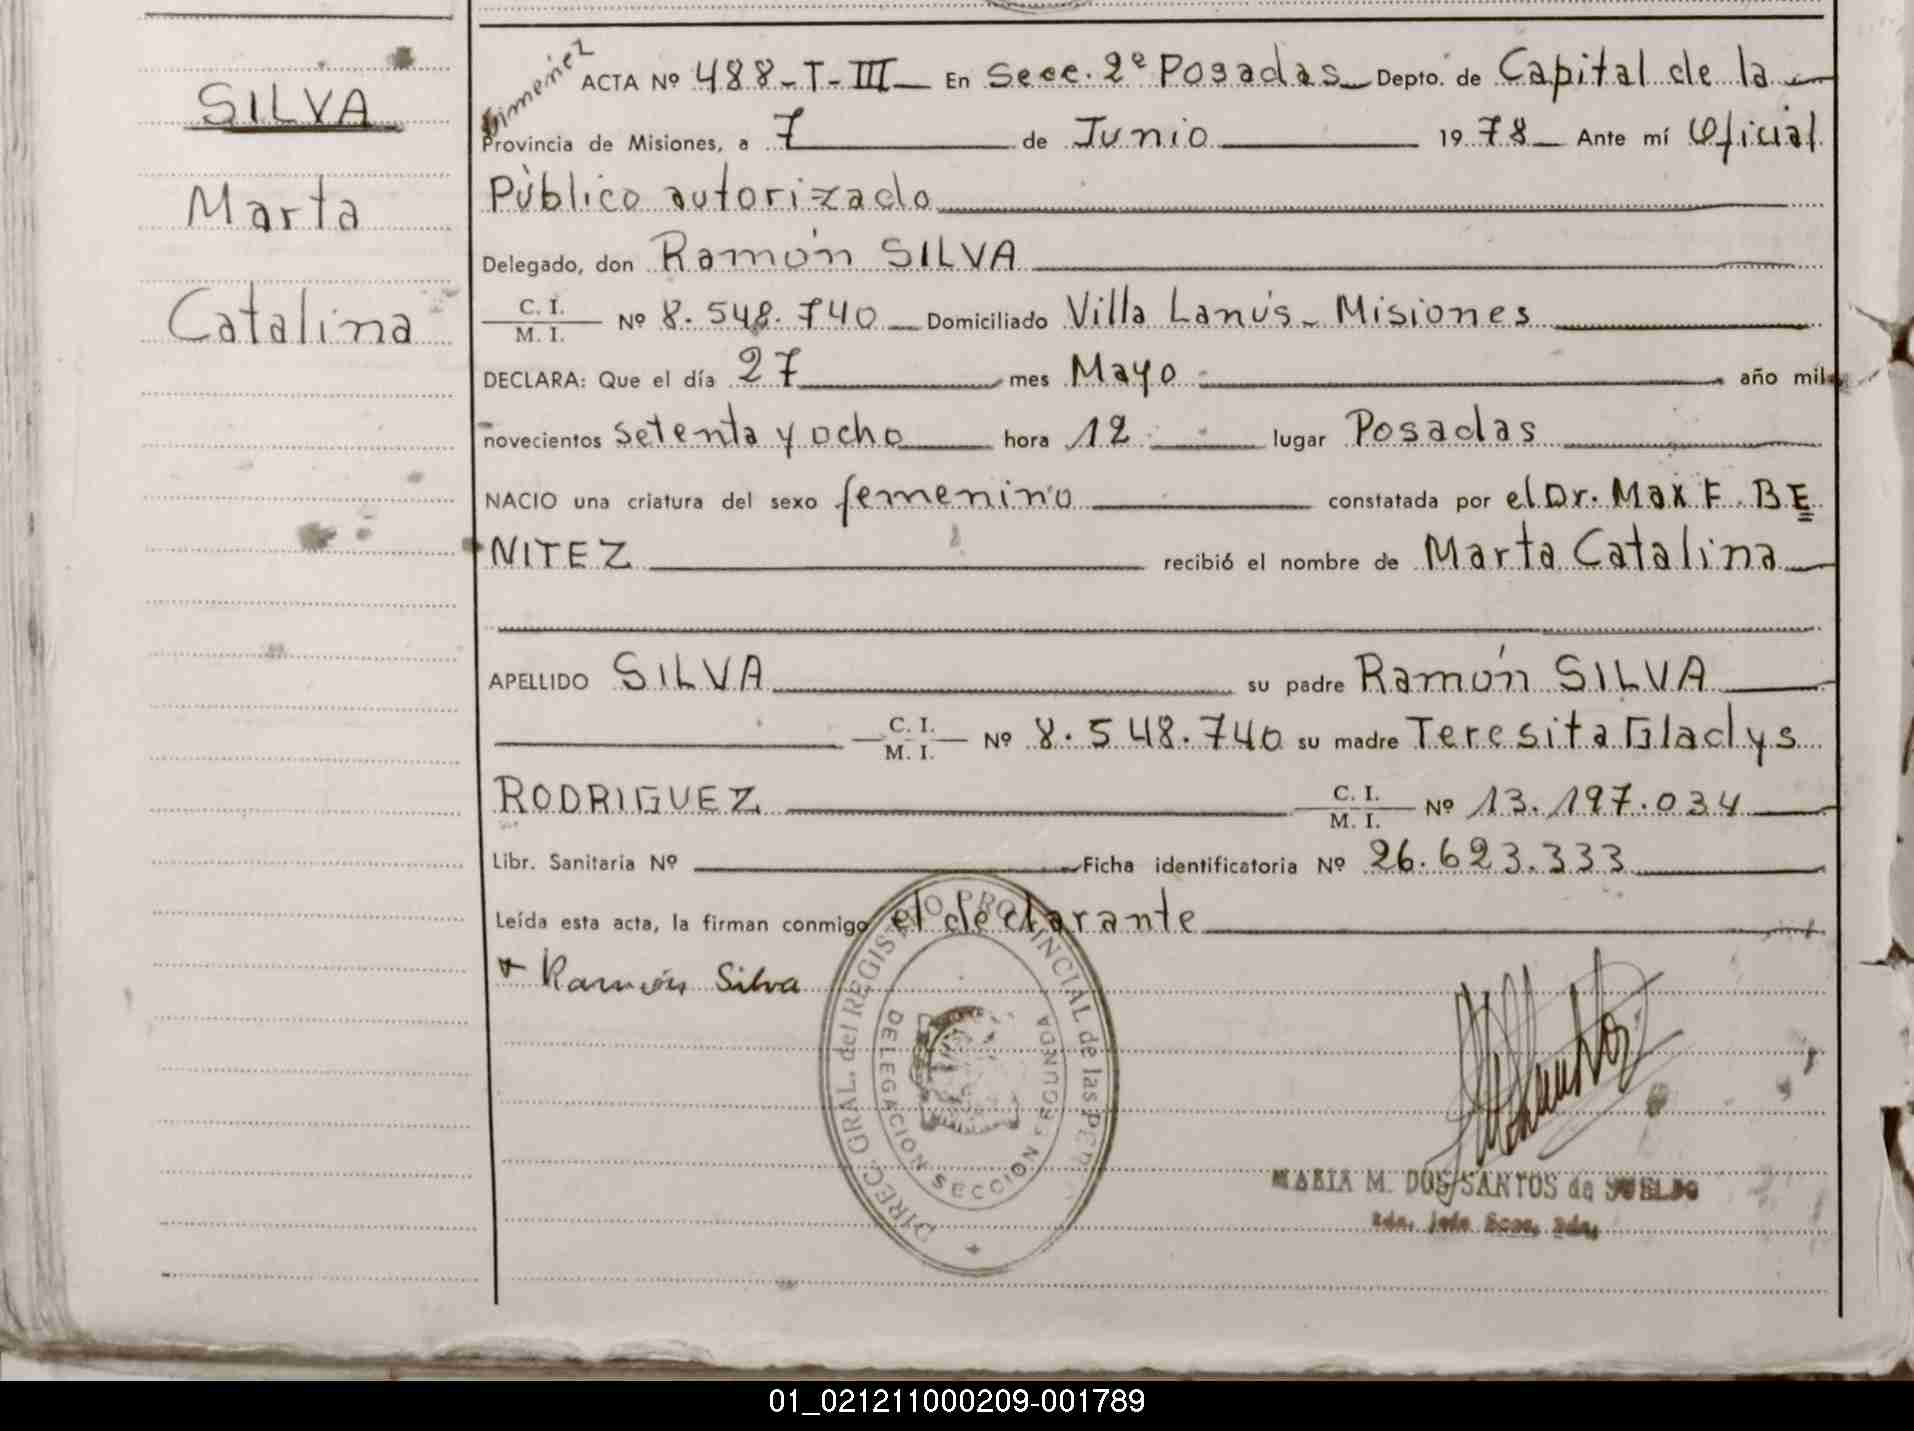 SILVA
Marta
Catalina
Gimenez
ACTA Nº 488-T-III- En Secc. 2º Posadas Depto. de Capital de la
Provincia de Misiones, a 7 de Junio 1978 Ante mí Oficial
Público autorizado
Delegado, don Ramón SILVA
C. I.
M. I. Nº 8.548.740 Domiciliado Villa Lanús - Misiones
DECLARA: Que el día 27 mes Mayo año mil
novecientos setenta y ocho hora 12 lugar Posadas
NACIO una criatura del sexo femenino constatada por el Dr. Max F. BE
NITEZ recibió el nombre de Marta Catalina
APELLIDO SILVA su padre Ramón SILVA
C. I.
M. I. Nº 8.548.740 su madre Teresita Gladys
RODRIGUEZ C. I.
M. I. Nº 13.197.034
Libr. Sanitaria Nº Ficha identificatoria Nº 26.623.333
Leída esta acta, la firman conmigo el declarante
Ramón Silva
DIREC. GRAL. del REGISTRO PROVINCIAL de las
DELEGACION SECCION SEGUNDA
MARIA M. DOS SANTOS de SUELDO
01_021211000209-001789